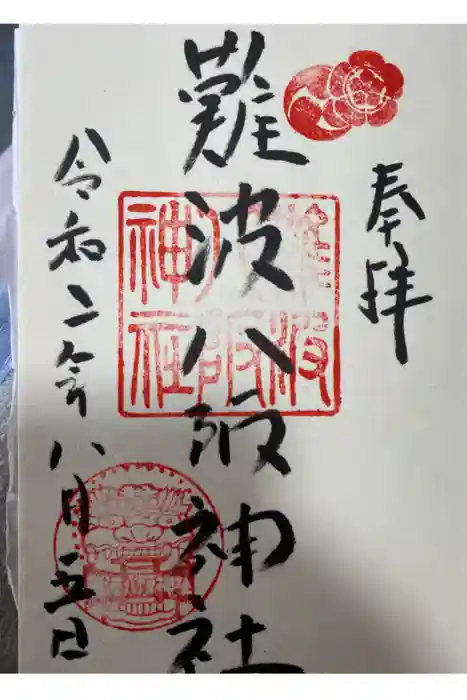 奉拝
難波八阪神社
難波
八阪
神社
令和二年八月五日